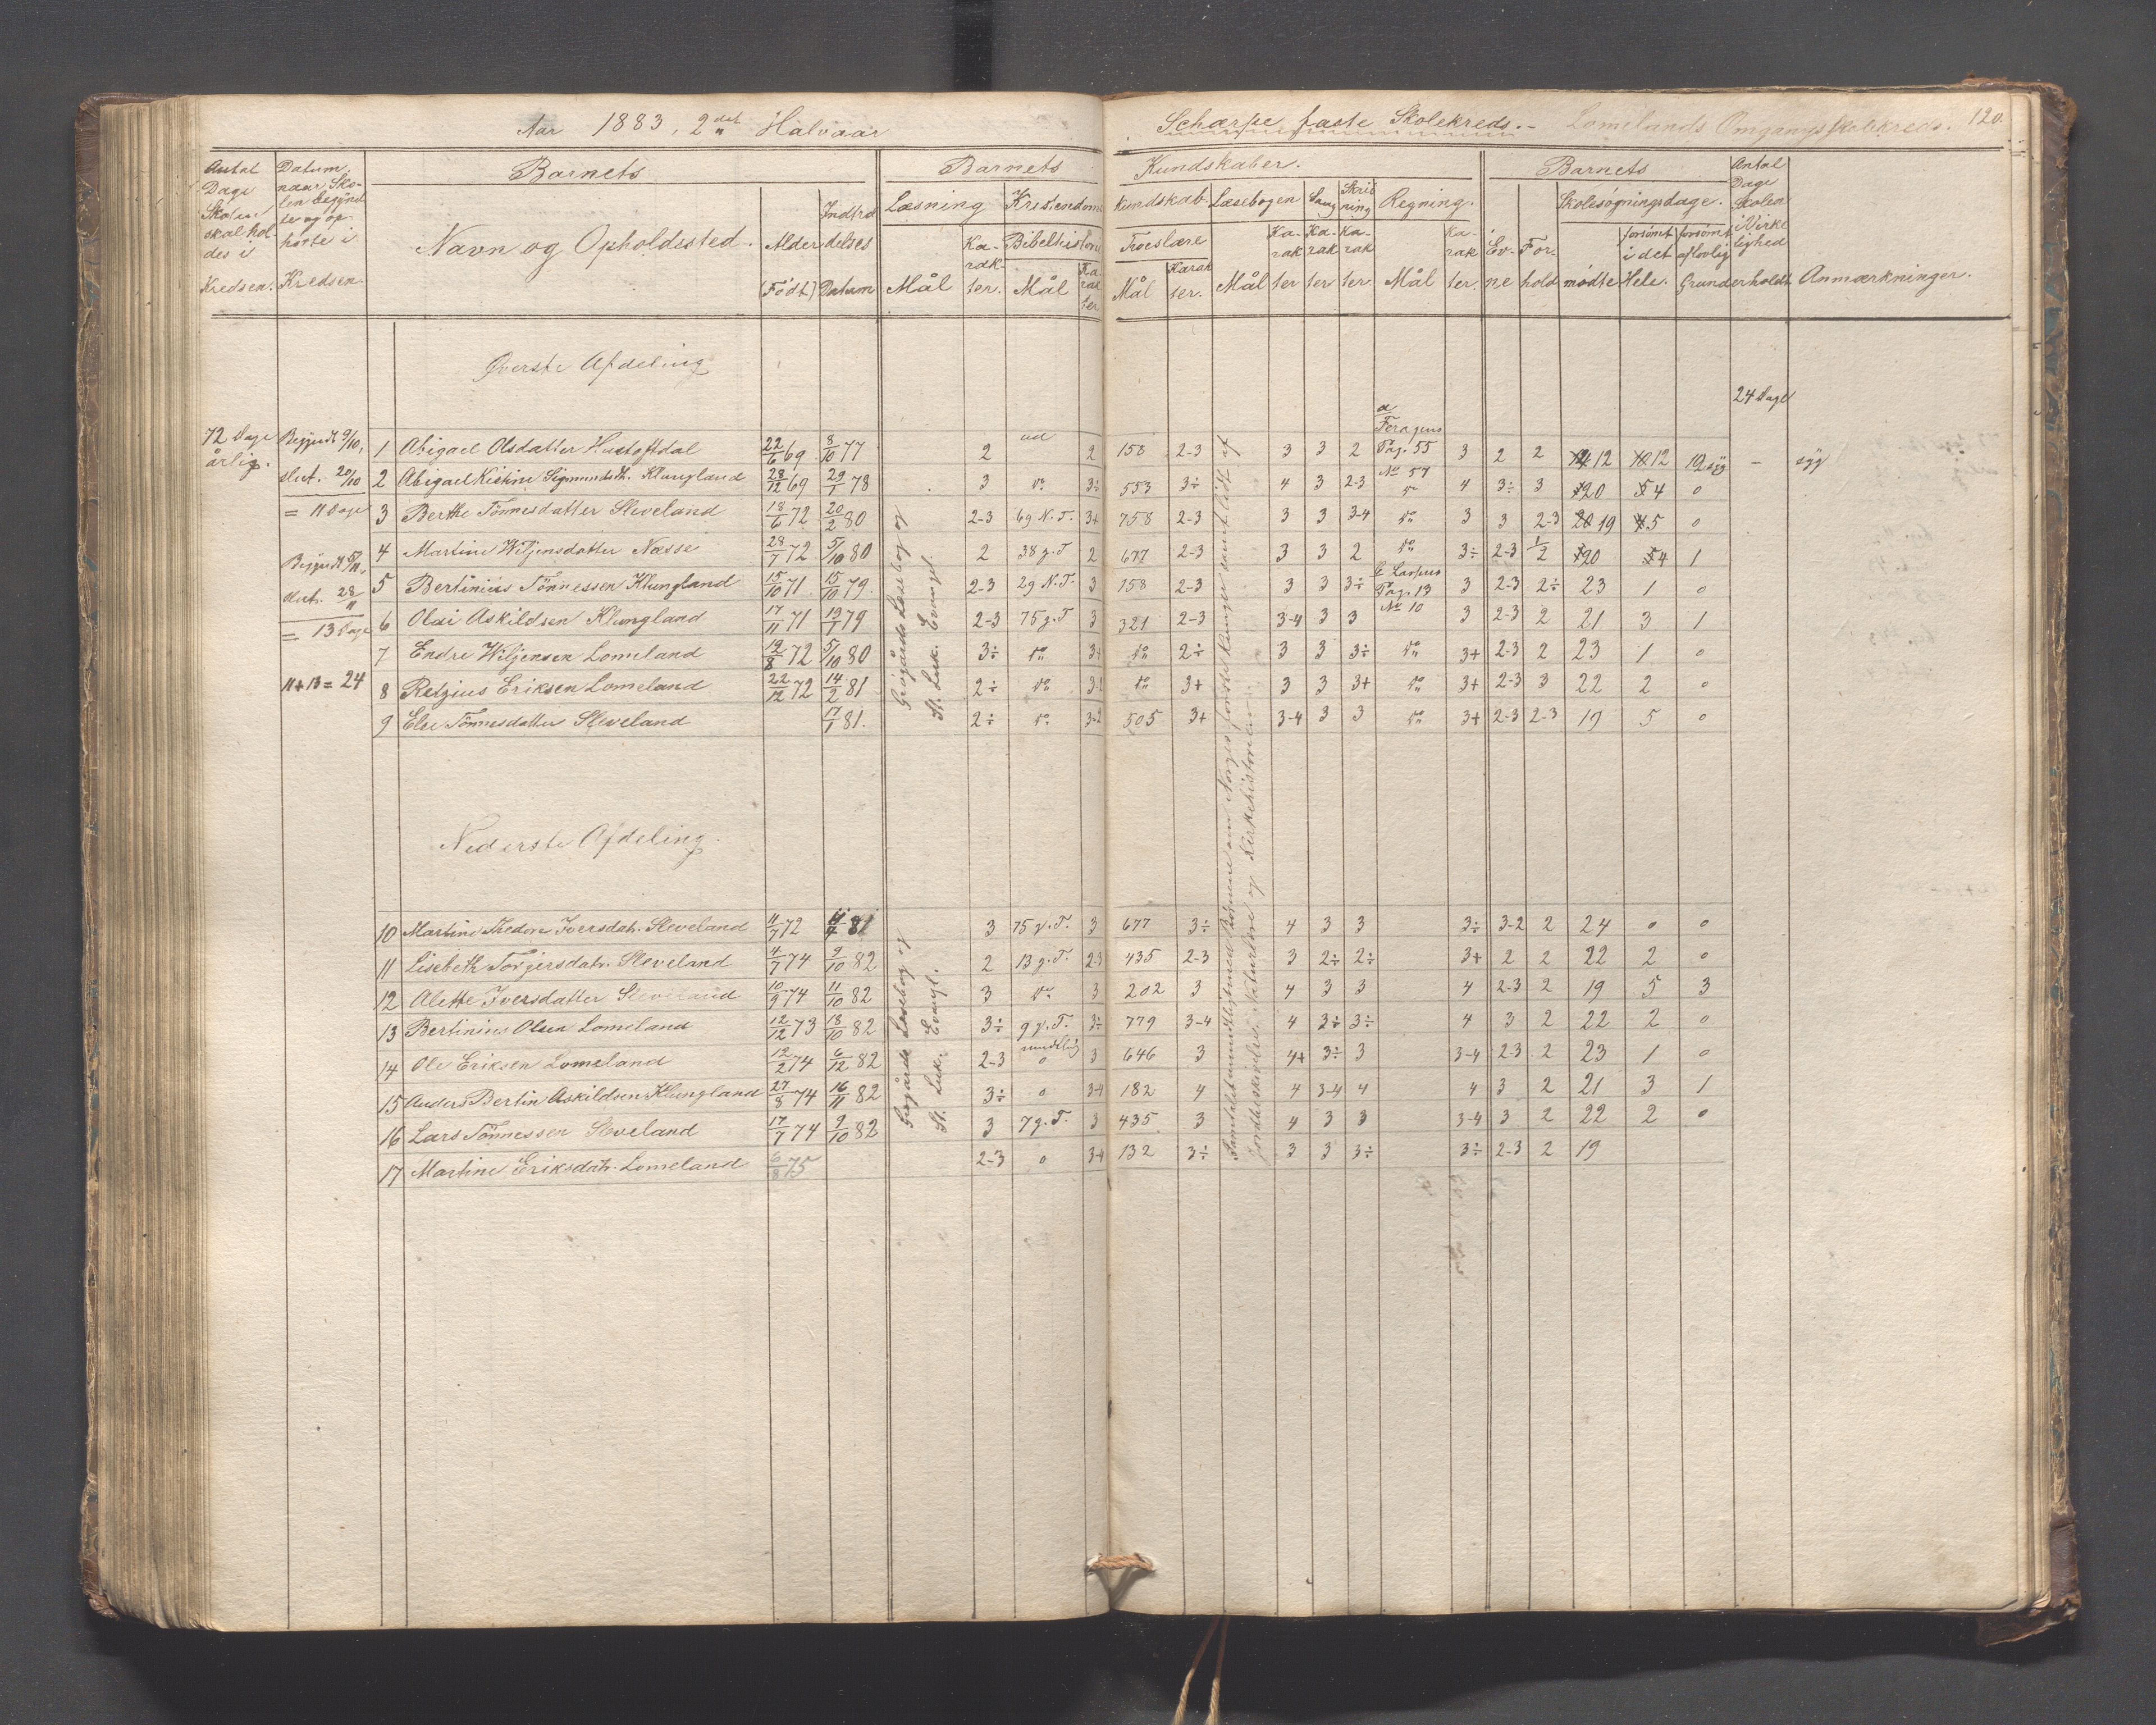 Aar 1883, 2det Halvaar
Schærpe faste Skolekreds. - Lomelands Omgangsskolekreds. 120.
Antal Dage Skolen skal holdes i Kredsen.
Datum, naar Skolen begyndte og ophørte i Kredsen.
Barnets
Navn og Opholdssted.
Alder (Født)
Indtrædelses Datum
Barnets Kundskaber.
Læsning
Mål
Karakter.
Kristendomskundskab.
Bibelhistorie
Mål
Karakter
Troeslære
Mål
Karakter.
Læsebogen
Mål
Karakter
Sang
Karakter
Skrivning
Karakter.
Regning.
Mål
Karakter.
Barnets
Evne
Forhold
Skolesøgningsdage.
mødte
forsømt i det Hele.
forsømt af lovlig Grund
Antal Dage Skolen i Virkelighed erholdt
Anmærkninger.
Øverste Afdeling
24 Dage
72 Dage årlig.
Begyndt 9/10,
slut. 20/10
= 11 Dage
Begyndt 5/11,
slut. 28/11
= 13 Dage
11+13 = 24
Grøgårds Læsebog og
St. Luk. Evangel.
1 Abigael Olsdatter Hustoftdal 22/6 69 8/10 77 2 ud 2 158 2-3 3 3 2 Pag. 55 3 2 2 12 12 12 syg - syg
2 Abigael Kistine Sigmundsdt. Klungland 28/12 69 29/1 78 3 do 3÷ 553 3÷ 4 3 2-3 No 57 do 4 3÷ 3 20 4 0
3 Berthe Tönnesdatter Sleveland 18/6 72 20/2 80 2-3 69 N.T. 3+ 758 2-3 3 3 3-4 do 3 3 2-3 19 5 0
4 Martine Wiljensdatter Næsse 28/7 72 5/10 80 2 38 g.T 2 677 2-3 3 3 2 do 3÷ 2-3 1/2 20 4 1
5 Bertinius Tönnessen Klungland 15/10 71 15/10 79 2-3 29 N.T. 3 158 2-3 3 3 3÷ Pag. 13 3 2-3 2÷ 23 1 0
6 Olai Askildsen Klungland 17/11 71 13/1 79 2-3 75 g.T 3 321 2-3 3-4 3 3 No 10 3 2-3 2 21 3 1
7 Endre Wiljensen Lomeland 12/8 72 5/10 80 3÷ do 3+ do 2÷ 3 3 3÷ do 3+ 2-3 2 23 1 0
8 Retzius Eriksen Lomeland 22/12 72 14/2 81 2÷ do 3-2 do 3+ 3 3 3+ do 3+ 2-3 3 22 2 0
9 Else Tönnesdatter Sleveland 17/1 81. 2÷ do 3-2 505 3+ 3-4 3 3 do 3+ 2-3 2-3 19 5 0
Nederste Afdeling.
Grøgårds Læsebog og
St. Luk. Evangl.
Samtalet mundtligt med Börnene om Norges forskellige
Jordbeskrivelse, Naturlære og Kirkehistorien
10 Martine Thedore Iversdatr. Sleveland 11/7 72 81 3 75 g.T. 3 677 3÷ 4 3 3 3÷ 3-2 2 24 0 0
11 Lisebeth Torjersdatr. Sleveland 4/7 74 9/10 82 2 13 g.T. 2-3 435 2-3 3 2÷ 2÷ 3+ 2 2 22 2 0
12 Alette Iversdatter Sleveland 10/9 74 11/10 82 3 do 3 202 3 4 3 3 4 2-3 2 19 5 3
13 Bertinius Olsen Lomeland 12/12 73 18/10 82 3÷ 9 g.T. 3÷ 779 3-4 4 3÷ 3÷ 4 3 2 22 2 0
14 Ole Eriksen Lomeland 12/2 74 6/12 82 2-3 mundtlig 0 3 646 3 4+ 3÷ 3 3-4 2-3 2 23 1 0
15 Anders Bertin Askildsen Klungland 27/8 74 16/11 82 3÷ 0 3-4 182 4 4 3-4 4 4 3 2 21 3 1
16 Lars Tönnessen Sleveland 17/7 74 9/10 82 3 7 g.T. 3 435 3 4 3 3 3-4 3 2 22 2 0
17 Martine Eriksdatr. Lomeland 6/8 75 2-3 0 3-4 132 3÷ 3 3 3÷ 3÷ 2-3 2 19